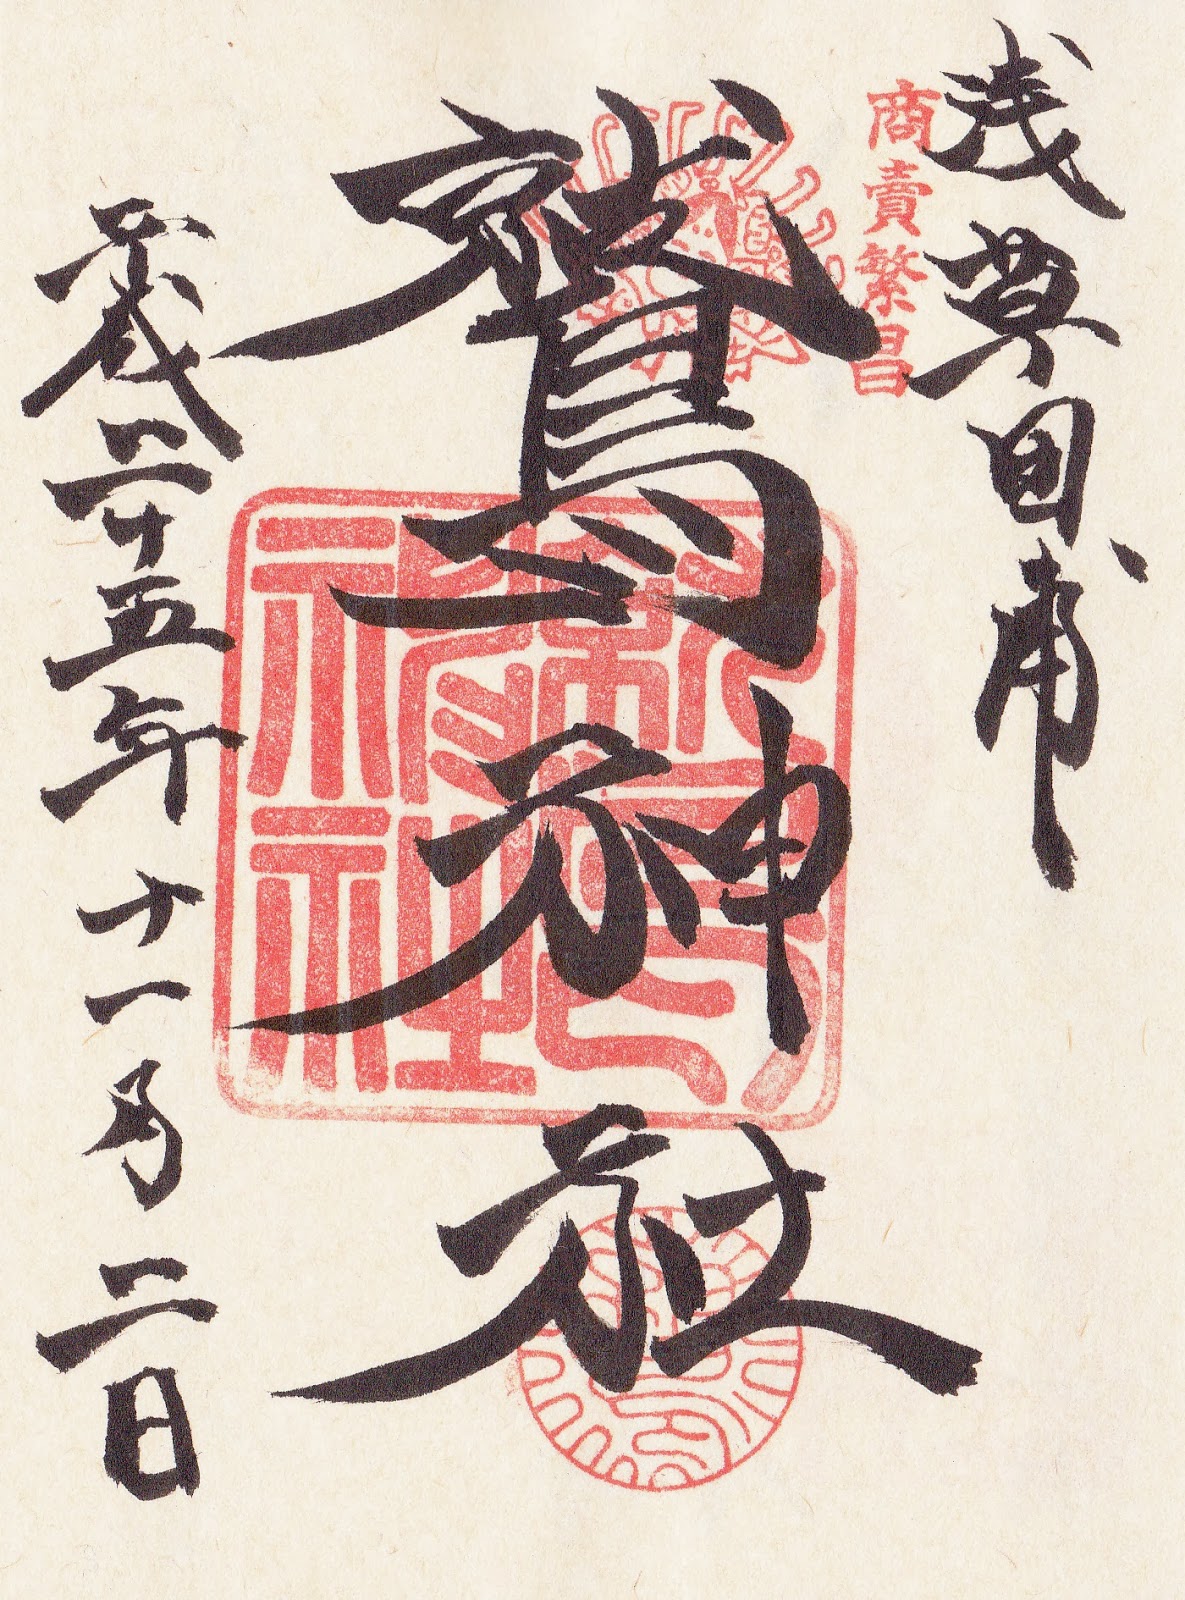 浅草田甫
商賣繁昌
鷲神社
平成二十五年十一月二日